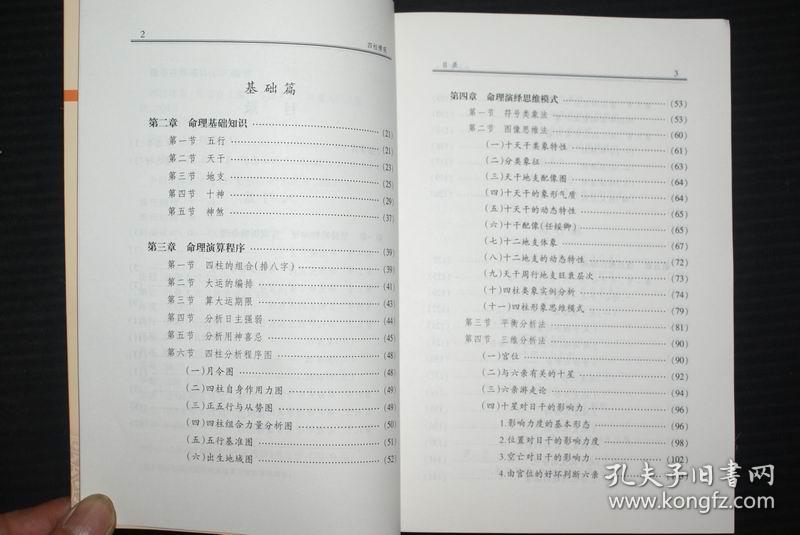 2
基础篇
第二章 命理基础知识 (21)
第一节 五行 (21)
第二节 天干 (23)
第三节 地支 (25)
第四节 十神 (29)
第五节 神煞 (37)
第三章 命理演算程序 (39)
第一节 四柱的组合(排八字) (39)
第二节 大运的编排 (41)
第三节 算大运期限 (43)
第四节 分析日主强弱 (44)
第五节 分析用神喜忌 (47)
第六节 四柱分析程序图 (48)
(一)月令图 (48)
(二)四柱自身作用力图 (49)
(三)正五行与从势图 (49)
(四)四柱组合力量分析图 (50)
(五)五行基准图 (51)
(六)出生地域图 (52)
目录
3
第四章 命理演绎思维模式 (53)
第一节 符号类象法 (53)
第二节 图像思维法 (60)
(一)十天干类象特性 (61)
(二)分类象征 (64)
(三)天干地支配像图 (64)
(四)十天干的象形气质 (64)
(五)十天干的动态特性 (65)
(六)十干配像(任绥卿) (65)
(七)十二地支体象
(八)十二地支的动态特性 (72)
(九)天干周行地支旺衰层次 (73)
(十)四柱类象实例分析 (74)
(十一)四柱形象思维模式 (79)
第三节 平衡分析法 (81)
第四节 三维分析法 (90)
(一)宫位 (90)
(二)与六亲有关的十星 (92)
(三)六亲游走论 (94)
(四)十星对日干的影响力 (96)
1.影响力度的基本形态 (96)
2.位置对日干的影响力度 (98)
3.空亡对日干的影响力 (102)
4.由宫位的好坏判断六亲
孔夫子旧书网
www.kongfz.com